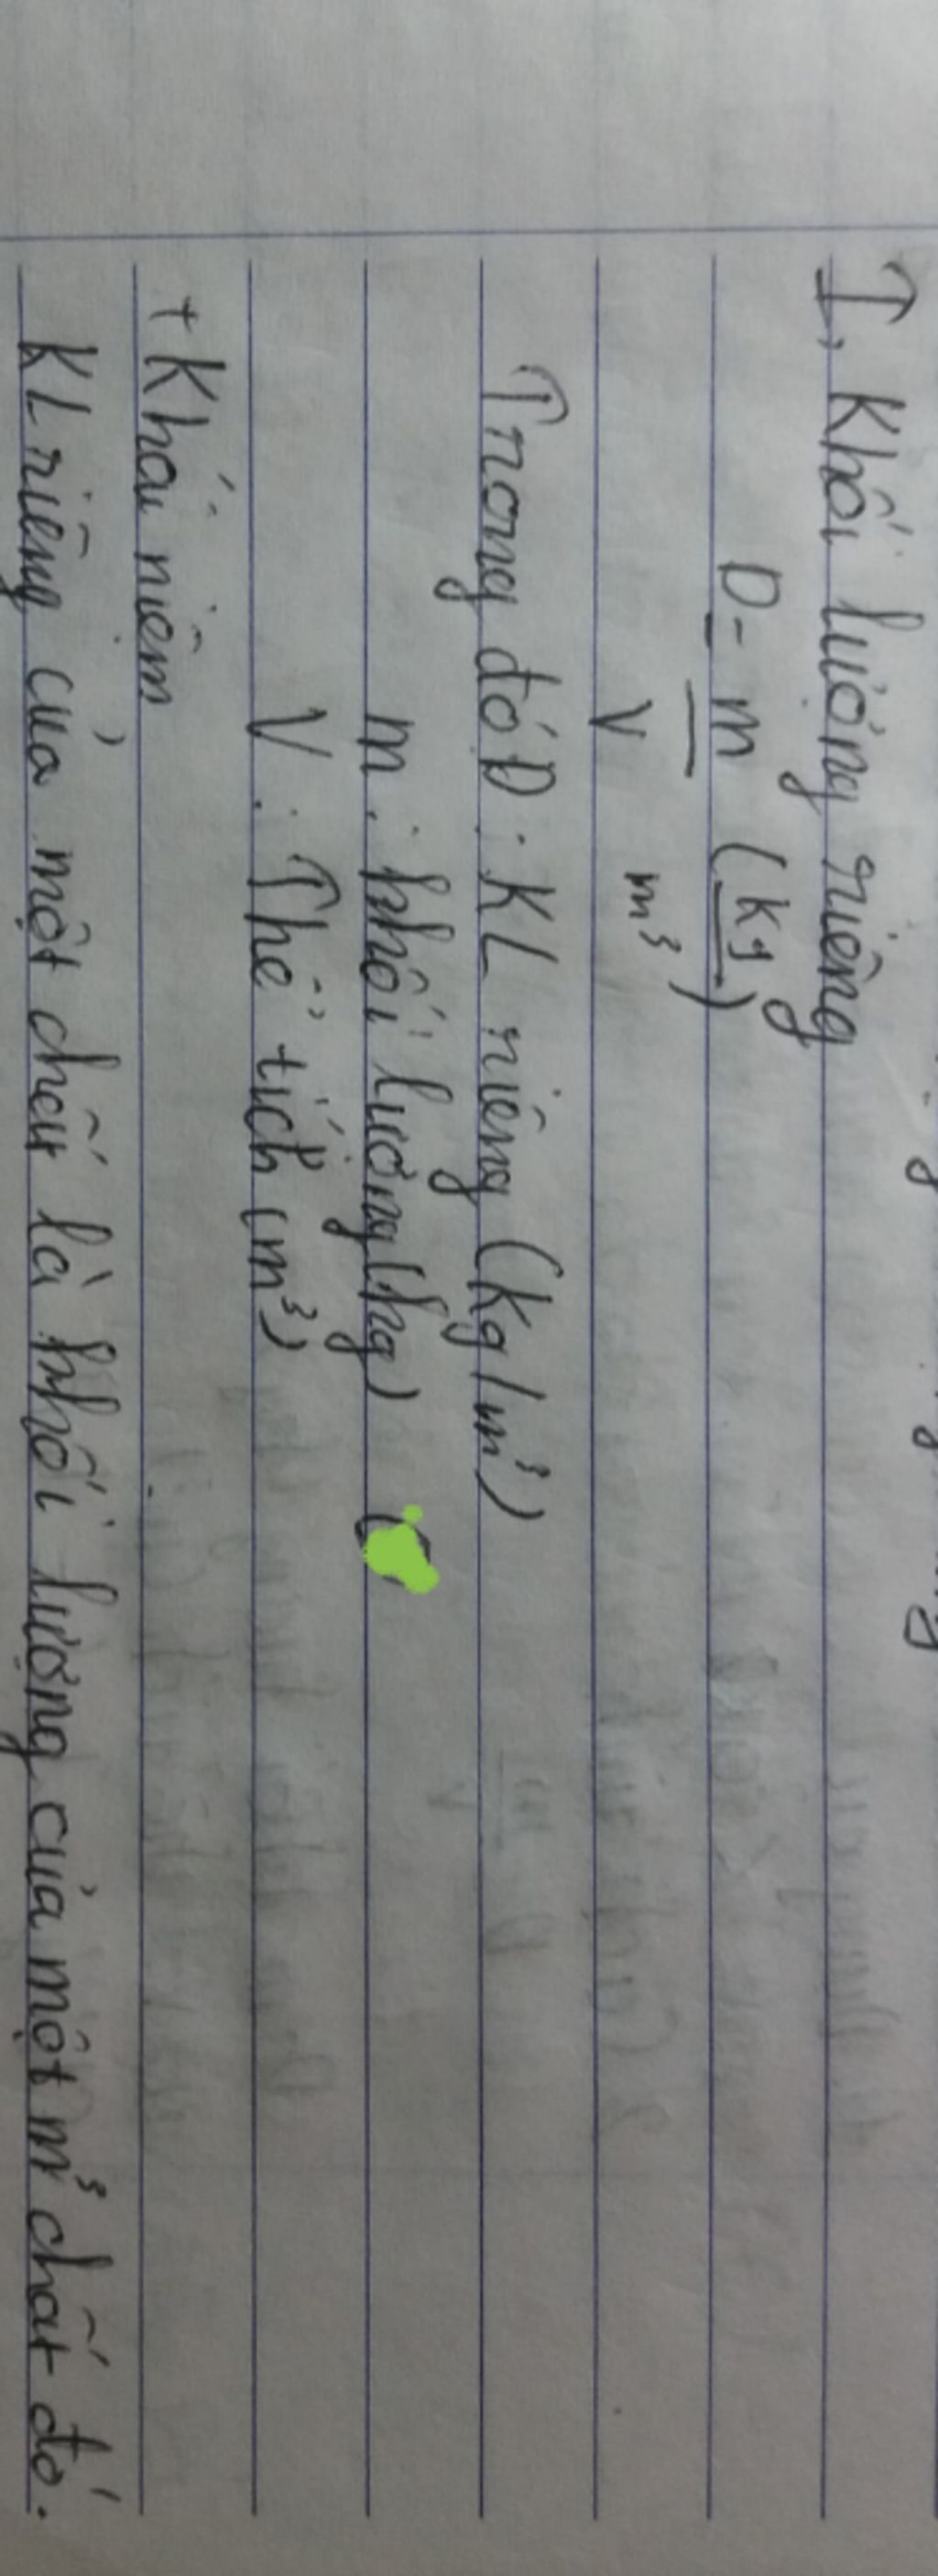 I, Khối lượng riêng
D = m (kg
V m³)
Trong đó D: KL riêng (kg/m³)
m: khối lượng (kg)
V: Thể tích (m³)
+ Khái niệm
KL riêng của một chất là khối lượng của một m³ chất đó.